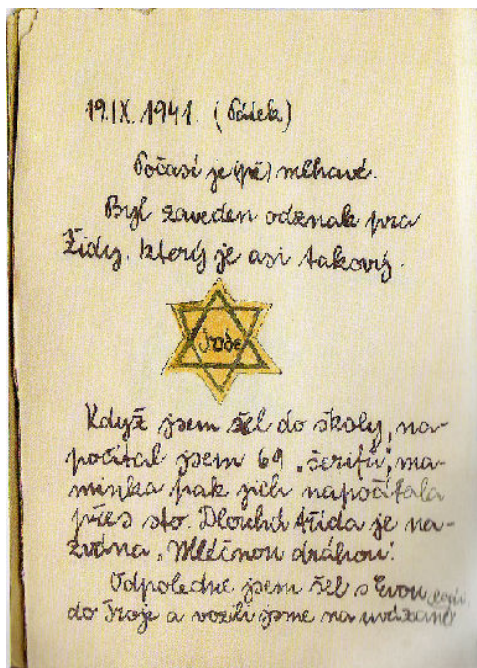 19.IX. 1941. (Pátek)
Počasí je mlhavé.
Byl zaveden odznak pro
Židy, který je asi takový.
Jude
Když jsem šel do školy, na-
počítal jsem 69 „šerifů“, ma-
minka pak jich napočítala
přes sto. Dlouhá třída je na-
zvána „Mléčnou dráhou“.
Odpoledne jsem šel s Evou
do Troje a vozili jsme na